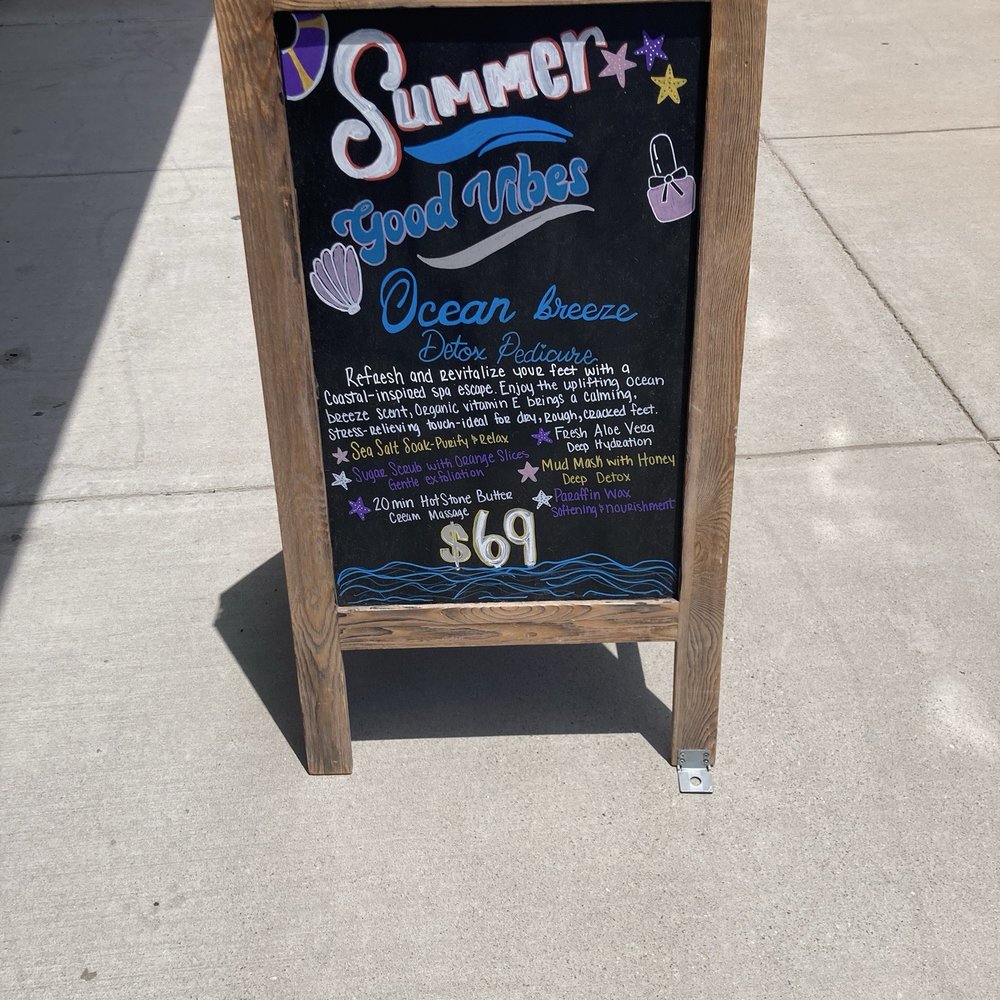 Summer
Good Vibes
Ocean breeze
Detox Pedicure
Refresh and revitalize your feet with a
Coastal-inspired spa escape. Enjoy the uplifting ocean
breeze scent, Organic vitamin E brings a calming,
stress-relieving touch-ideal for dry, rough, cracked feet.
Sea Salt Soak-Purify & Relax
Sugar Scrub with Orange Slices
Gentle exfoliation
20 min Hot Stone Butter
Cream Massage
Fresh Aloe Vera
Deep Hydration
Mud Mask with Honey
Deep Detox
Paraffin Wax
Softening & nourishment
$69